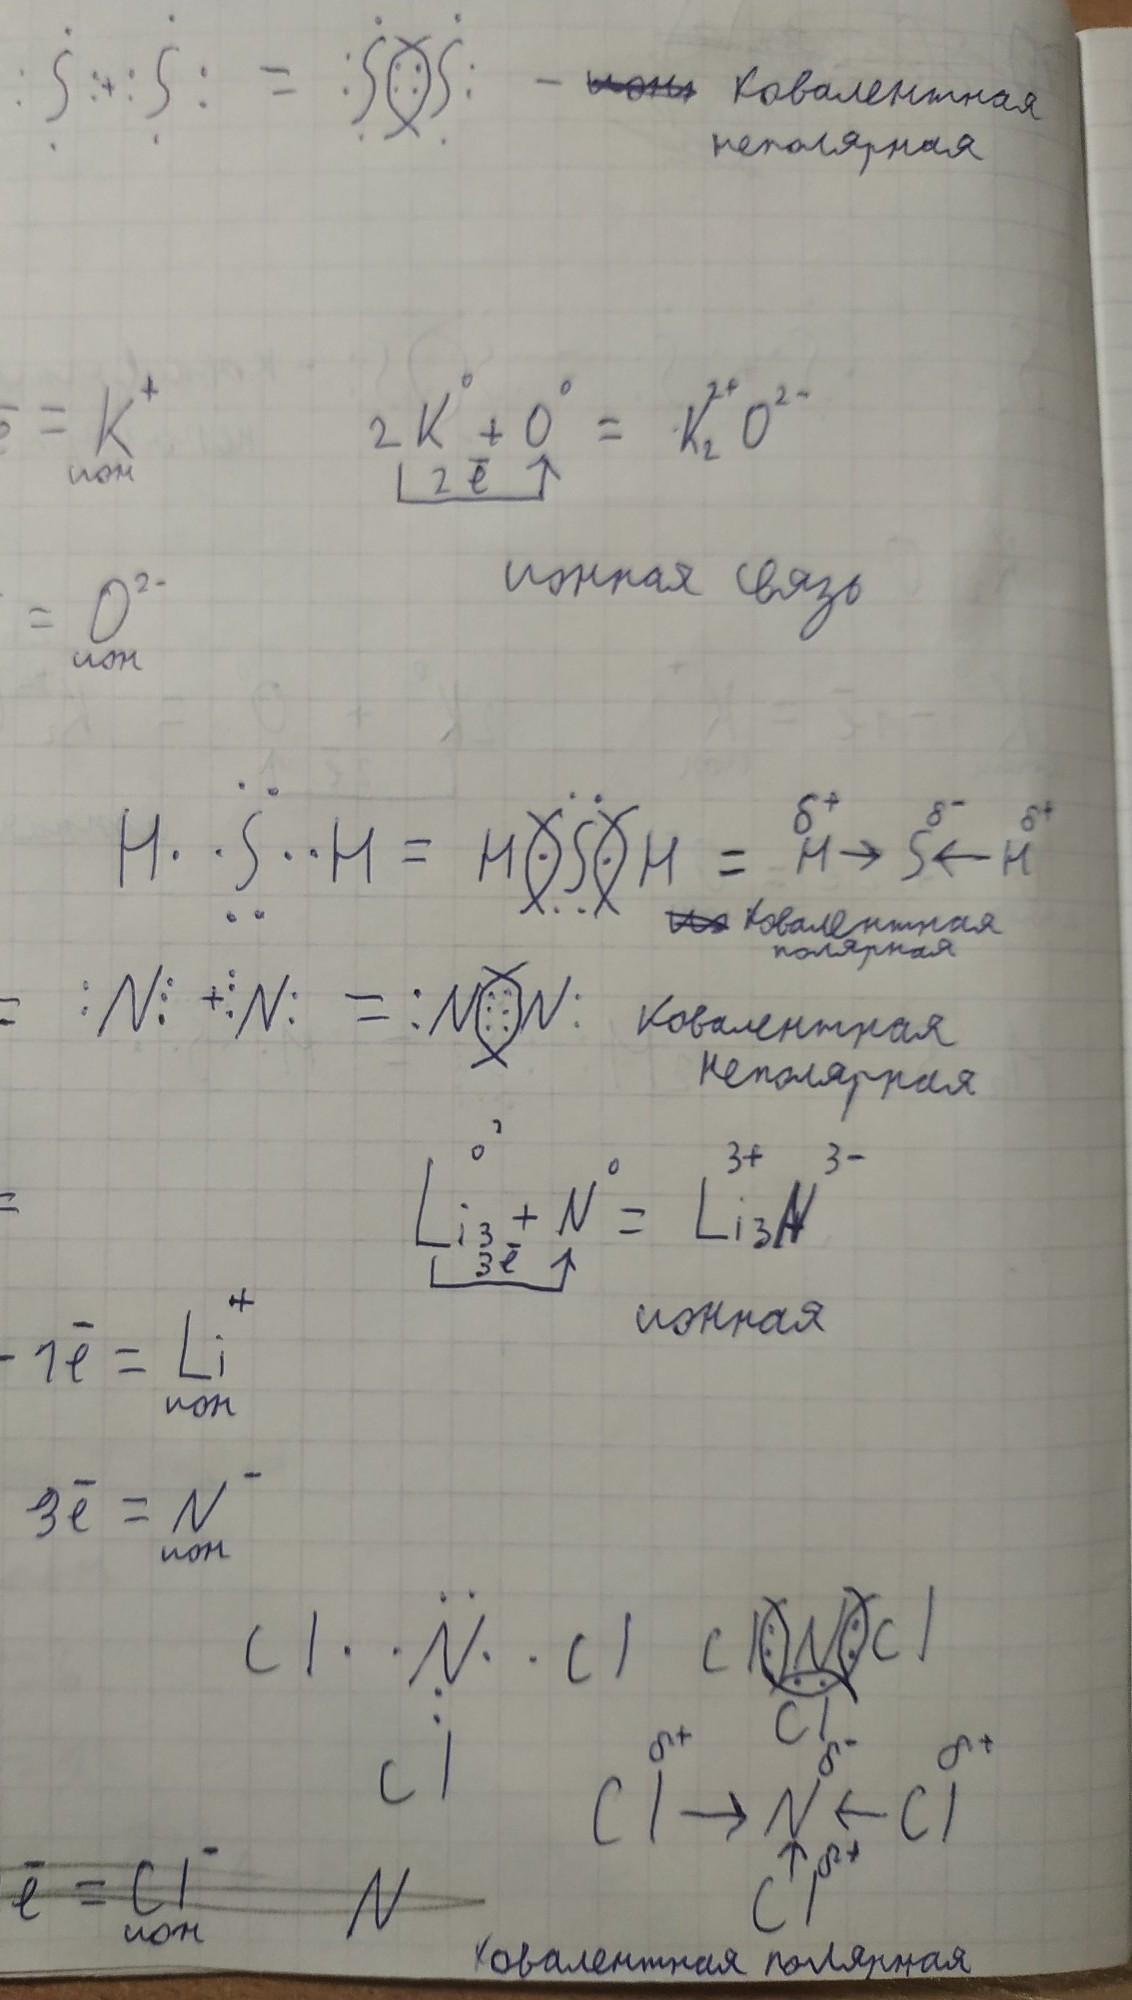 :S: + :S: = :S::S: - Ковалентная
неполярная
ē = K⁺ 2K⁰ + O⁰ = K₂²⁺O²⁻
ион 2ē
= O²⁻ ионная связь
ион
H· ·S· ·H = H:S:H = H → S ← H
δ+ δ- δ+
Ковалентная
полярная
= :N: + :N: = :N:::N: Ковалентная
Неполярная
= Li₃⁰ + N⁰ = Li₃³⁺N³⁻
3ē
ионная
- 1ē = Li⁺
ион
3ē = N⁻
ион
Cl· ·N· ·Cl Cl:N:Cl
Cl Cl
δ+ δ- δ+
Cl → N ← Cl
↑ δ+
ē = Cl⁻ N Cl
ион
Ковалентная полярная